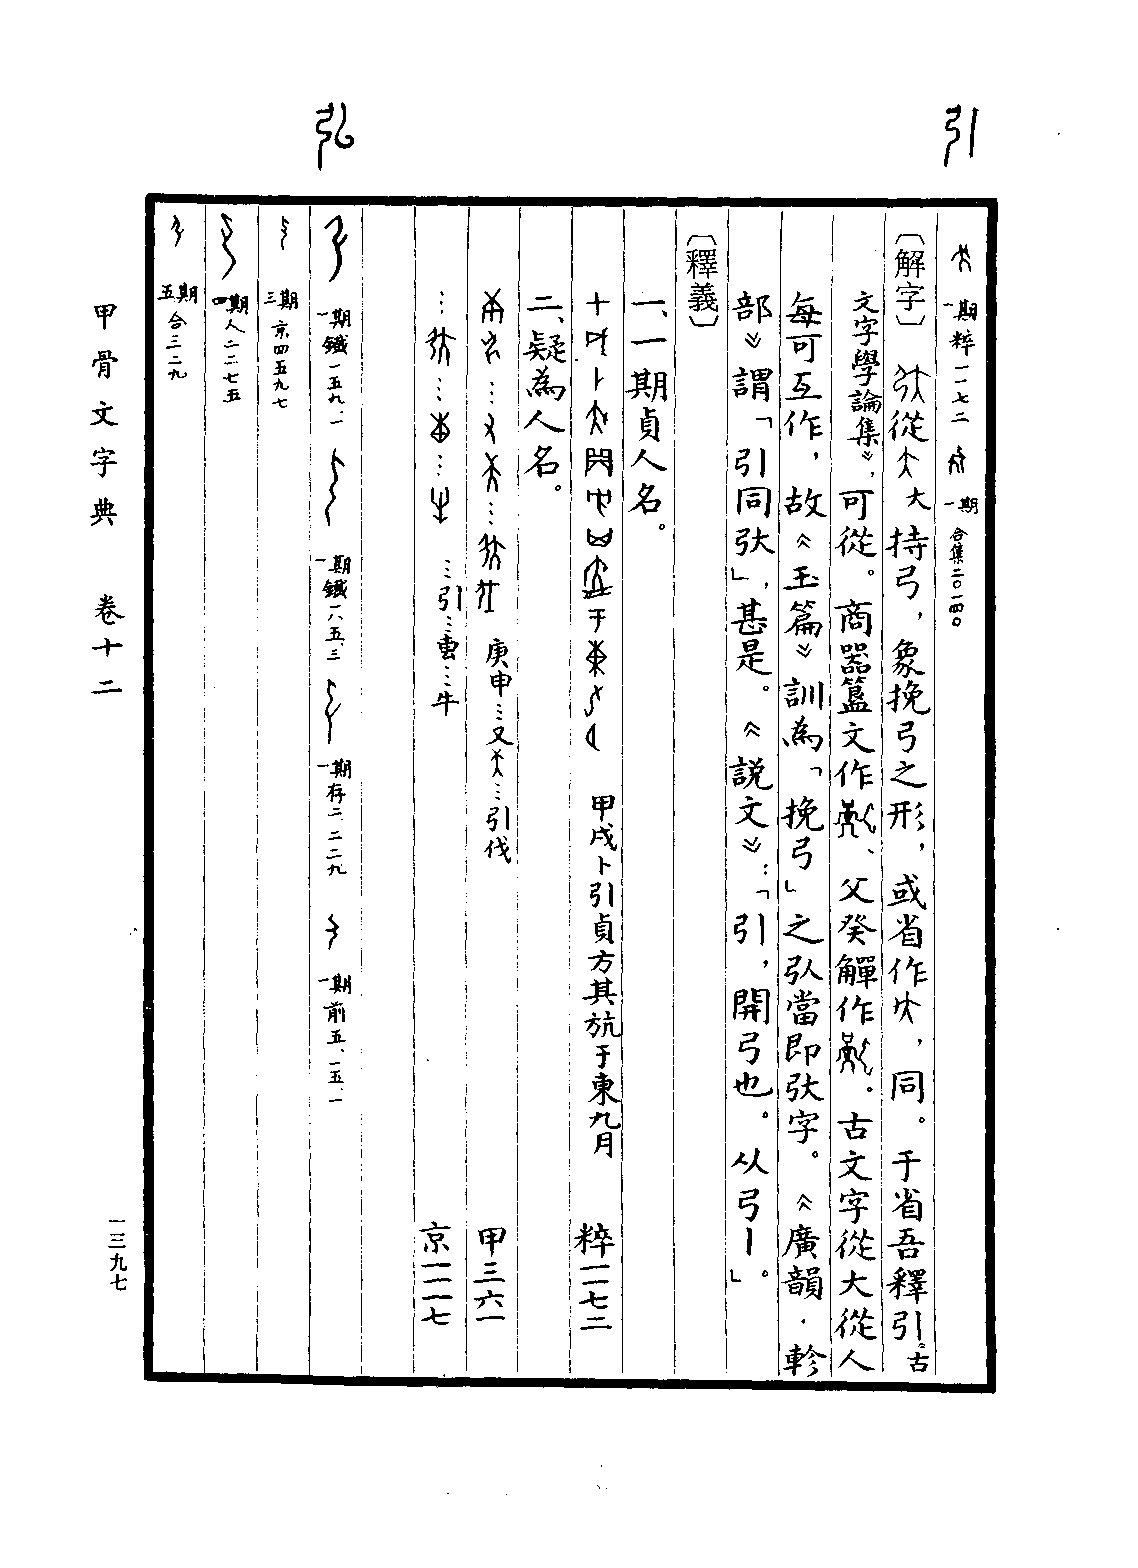 引
弘
一期 粹一一七二 一期 合集二〇一四〇
〔解字〕 從大持弓，象挽弓之形，或省作，同。于省吾釋引《古
文字學論集》，可從。商器簋文作、父癸觶作。古文字從大從人
每可互作，故《玉篇》訓為「挽弓」之弞當即㧈字。《廣韻·軫
部》謂「引同」，甚是。《說文》：「引，開弓也。从弓丨。」
〔釋義〕
一、一期貞人名。
甲戌卜引貞方其㫄于東九月 粹一一七二
二、疑為人名。
庚申…又…引伐 甲三六一
…引…叀…牛 京一一一七
一期 鐵一五九、一 一期 鐵一八五、三 一期 存二、二二九 一期 前五、一五、一
三期 京四五九七
四期 人二二七五
五期 合三二九
甲骨文字典 卷十二
一三九七